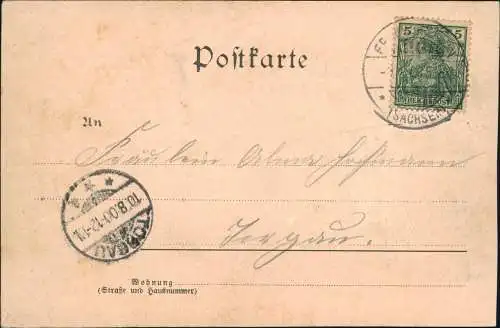 Postkarte
5 5
(SACHSEN)
An
Fräulein Alma Hofmann
Torgau.
TORGAU
10.8.00.
Wohnung
(Straße und Hausnummer)